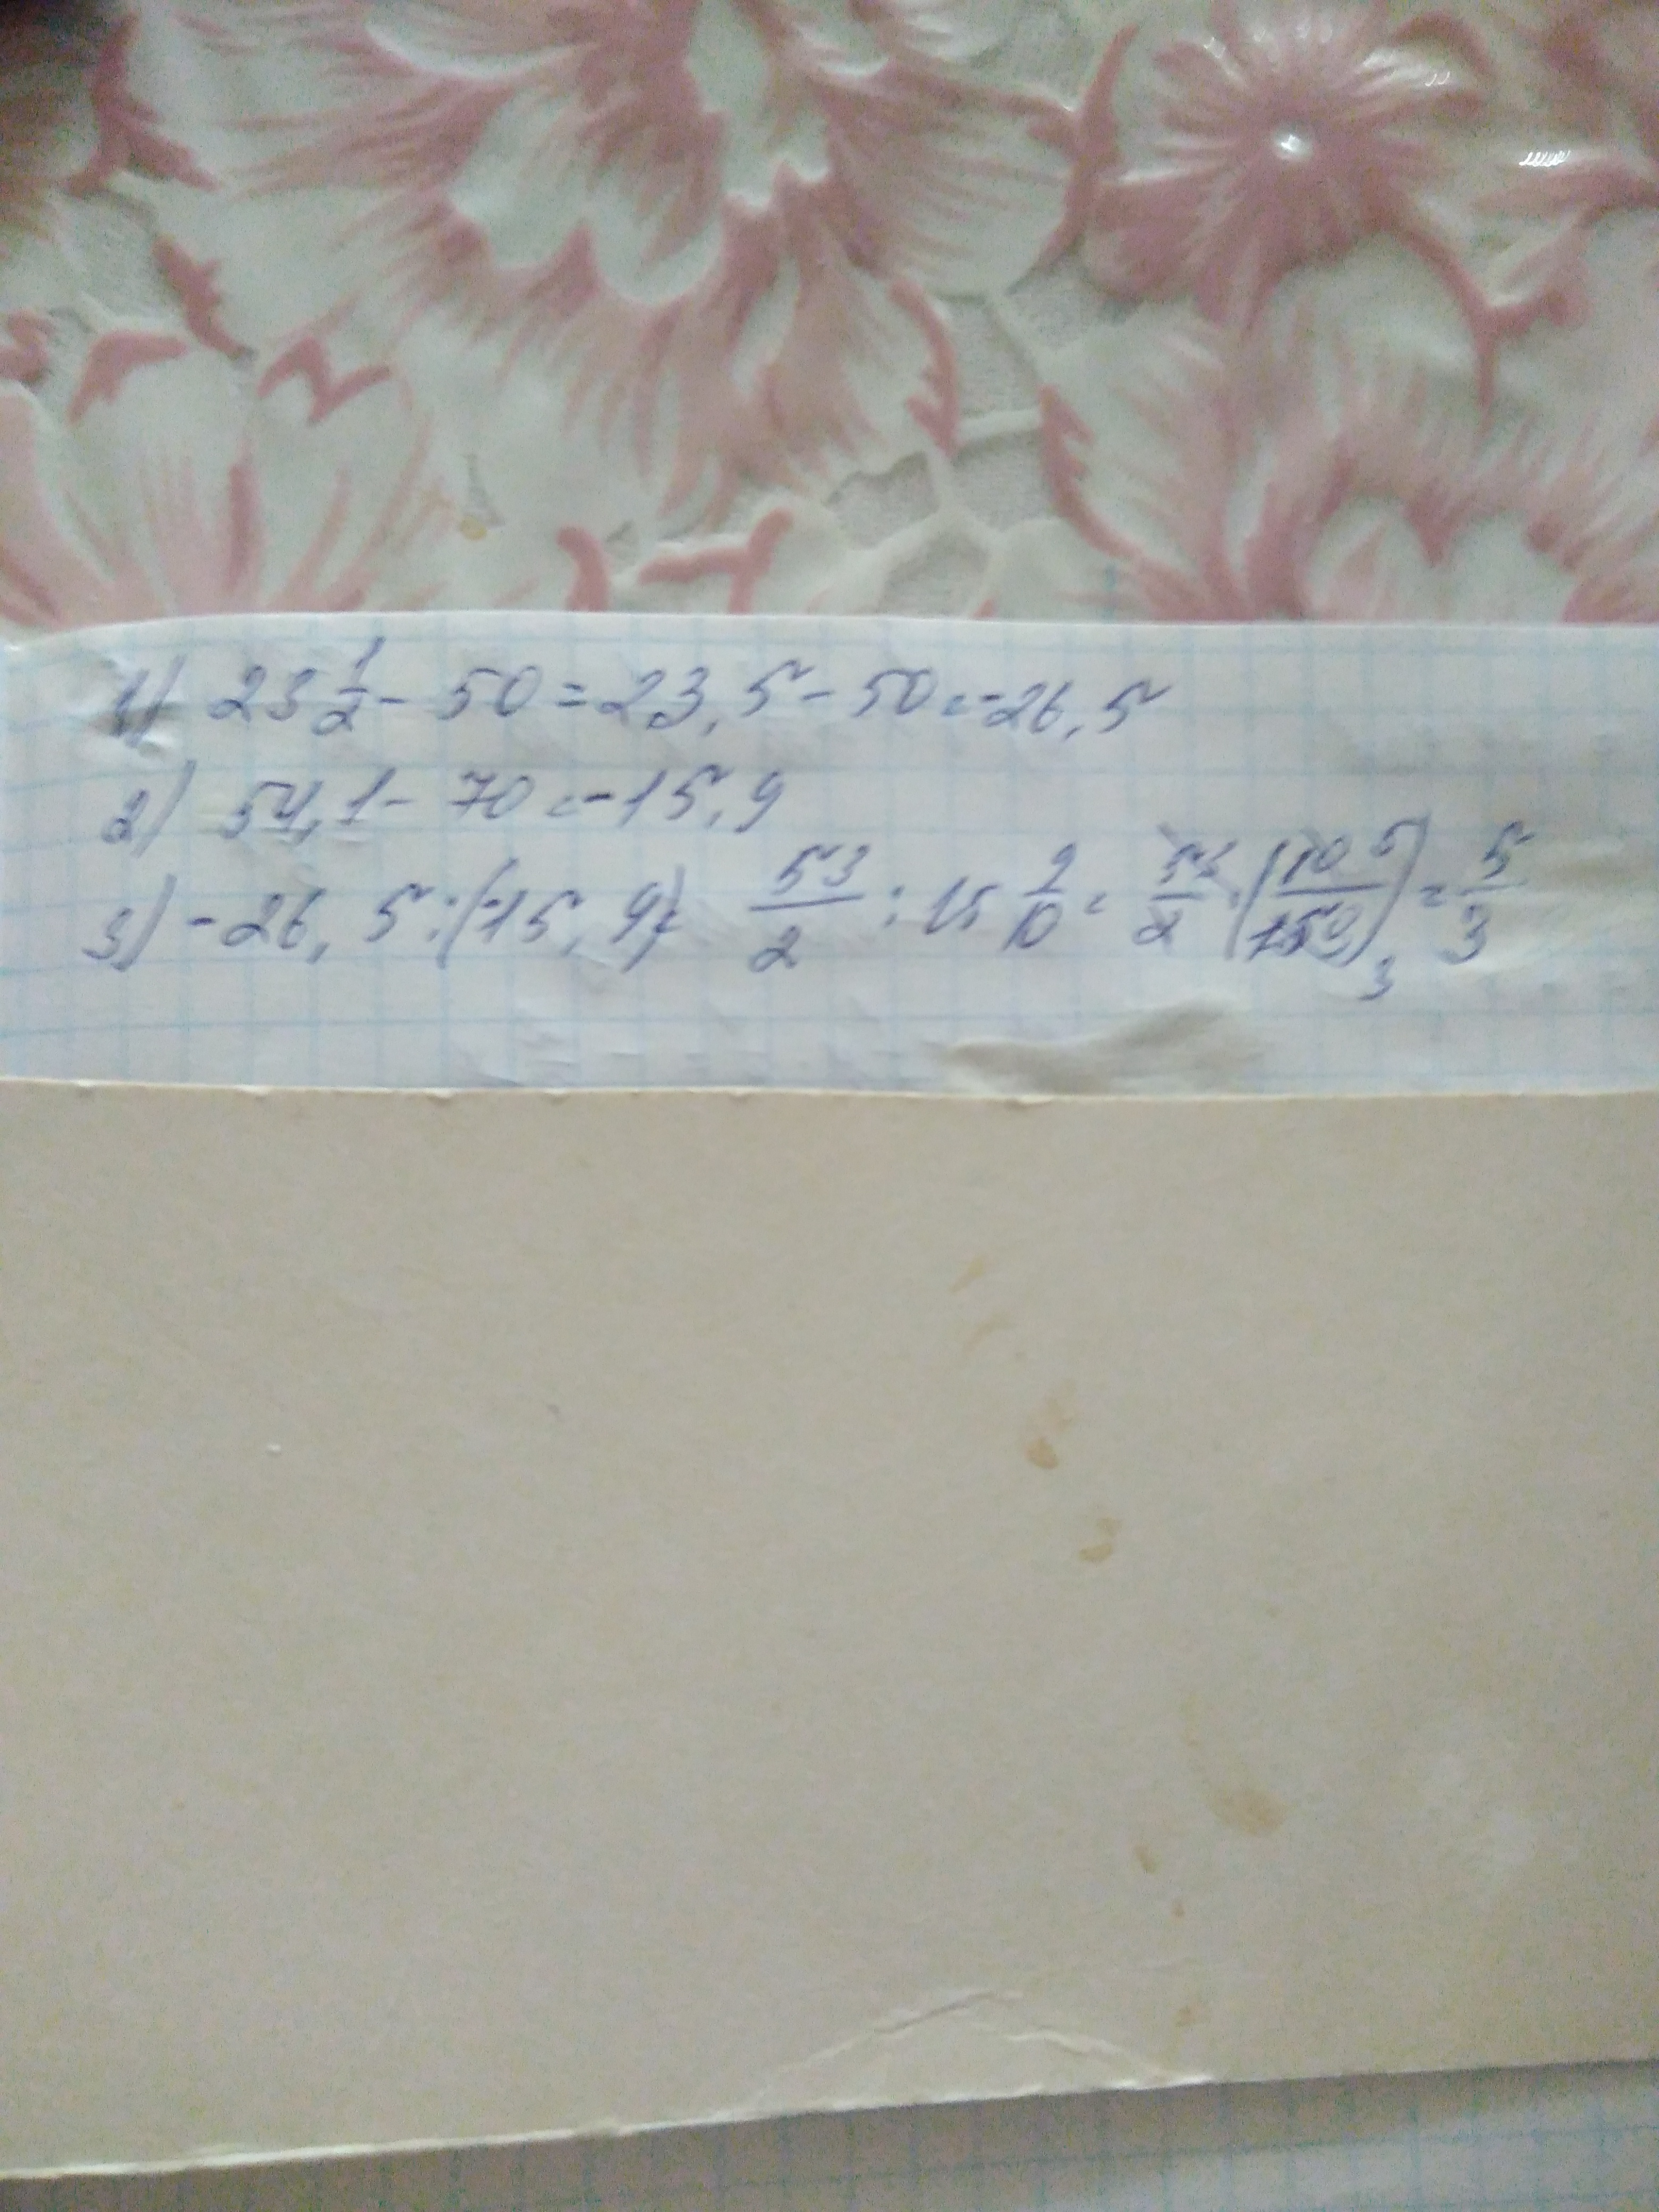 1) 23 1/2 - 50 = 23,5 - 50 = -26,5
2) 54,1 - 70 = -15,9
3) -26,5 : (-15,9) = 53/2 : 15 9/10 = 53/2 · (10 5/159 3) = 5/3